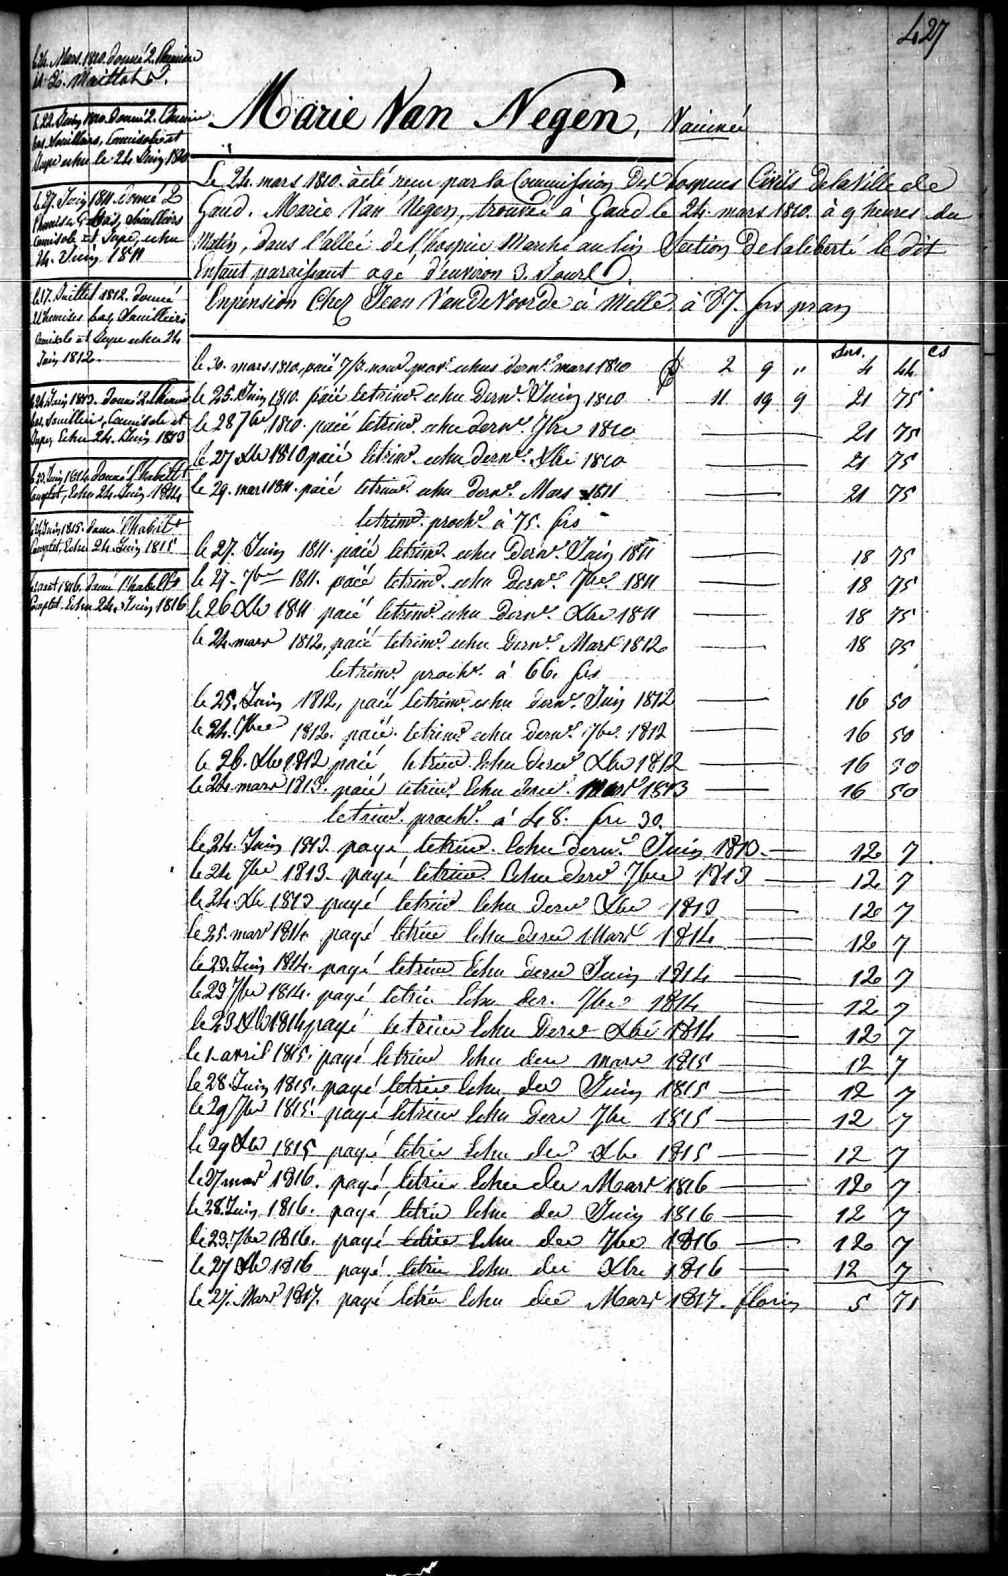 427
Le 24. Mars 1810. donné 2. Chemises
et 26. Maillots.
Le 22. Juin 1810. Donné 2. Chemises
bas, Souilliers, Camisole et
Jupe echu le 24 Juin 1810
Le 27. Juin 1811. donné 2
Chemises, bas, Souilliers
Camisole et Jupe, echu
24. Juin 1811
Le 17. Juillet 1812. donné
2 Chemises bas, Souilliers
Camisole et Jupe echu 24
Juin 1812.
Le 26 Juin 1813. donné 2 Chemises
bas, Souilliers, Camisole et
Jupe, Echu 24. Juin 1813
Le 23. Juin 1814 donné l'habillt
Complet, Echu 24. Juin 1814
Le 24 Juin 1815. donné l'habillt
Complet, Echu 24. Juin 1815
août 1816. donné l'habillt
Complet. Echu 24. Juin 1816
Marie Van Negen,
Le 24. mars 1810. a été recu par la Commission Des hospices Civils de la Ville de
Gand. Marie Van Negen, trouvée à Gand le 24. mars 1810. à 9 heures du
Matin, dans l'allée de l'hospice Marché au lin Section De la liberté le dit
Enfant paraissant agé d'environ 3. Jours.
En pension Chez Jean Van De Voorde à Melle à 87. frs pr an
frs. cs
le 30. mars 1810, paié 7/6. nour. pour echus dernr. mars 1810 2 9 " 4 44
le 25. Juin 1810. paié le trimr. echu Dernr. Juin 1810 11 19 9 21 75
le 28 7bre 1810. paié le trimr. echu dernr. 7bre 1810 — 21 75
le 27 Xbre 1810 paié le trimr. echu dernr. Xbre 1810 — 21 75
le 29. mars 1811. paié le trimr. echu Dernr. Mars 1811 — 21 75
le trimr. prochr. à 75. frs
le 27. Juin 1811. paié le trimr. echu Dernr. Juin 1811 — 18 75
le 27. 7bre 1811. paié le trimr. echu Dernr. 7bre. 1811 — 18 75
le 26 Xbre 1811 paié le trimr. echu Dernr. Xbre 1811 — 18 75
le 24. mars 1812, paié le trimr. echu Dernr. Mars 1812 — 18 75
le trimr. prochr. à 66. frs
le 25. Juin 1812, paié le trimr. echu dernr. Juin 1812 — 16 50
le 24. 7bre 1812. paié le trimr. echu dernr. 7bre. 1812 — 16 50
le 26. Xbre 1812 paié le trimr. Echu dernr Xbre 1812 — 16 50
le 24. mars 1813. paié le trimr. Echu dernr. Mars 1813 — 16 50
le trimr. prochr. à 48. frs 30.
le 24. Juin 1813. payé le trimr. Echu dernr. Juin 1813. — 12 7
le 24 7bre 1813. payé le trimr Echu dernr 7bre 1813 — 12 7
le 24. Xbre 1813 payé le trimr Echu dernr Xbre 1813 — 12 7
le 25. mars 1814 payé le trim Echu dernr Mars 1814 — 12 7
le 23. Juin 1814. payé le trim Echu dernr Juin 1814 — 12 7
le 23 7bre 1814. payé le trim Echu der. 7bre 1814 — 12 7
le 23 Xbre 1814 payé le trim Echu Dernr Xbre 1814 — 12 7
le 1. avril 1815. payé le trim Echu der mars 1815 — 12 7
le 28. Juin 1815. payé le trim Echu der Juin 1815 — 12 7
le 29 7bre 1815. payé le trim Echu Dern 7bre 1815 — 12 7
le 29 Xbre 1815 payé le trim Echu der Xbre 1815 — 12 7
le 27 mars 1816. payé le trim Echu der Mars 1816 — 12 7
le 28. Juin 1816. payé le trim Echu der Juin 1816 — 12 7
le 23. 7bre 1816. payé le trim Echu der 7bre 1816 — 12 7
le 27 Xbre 1816 payé le trim Echu der Xbre 1816 — 12 7
le 27. Mars 1817. payé le trim Echu der Mars 1817. florins 5 71